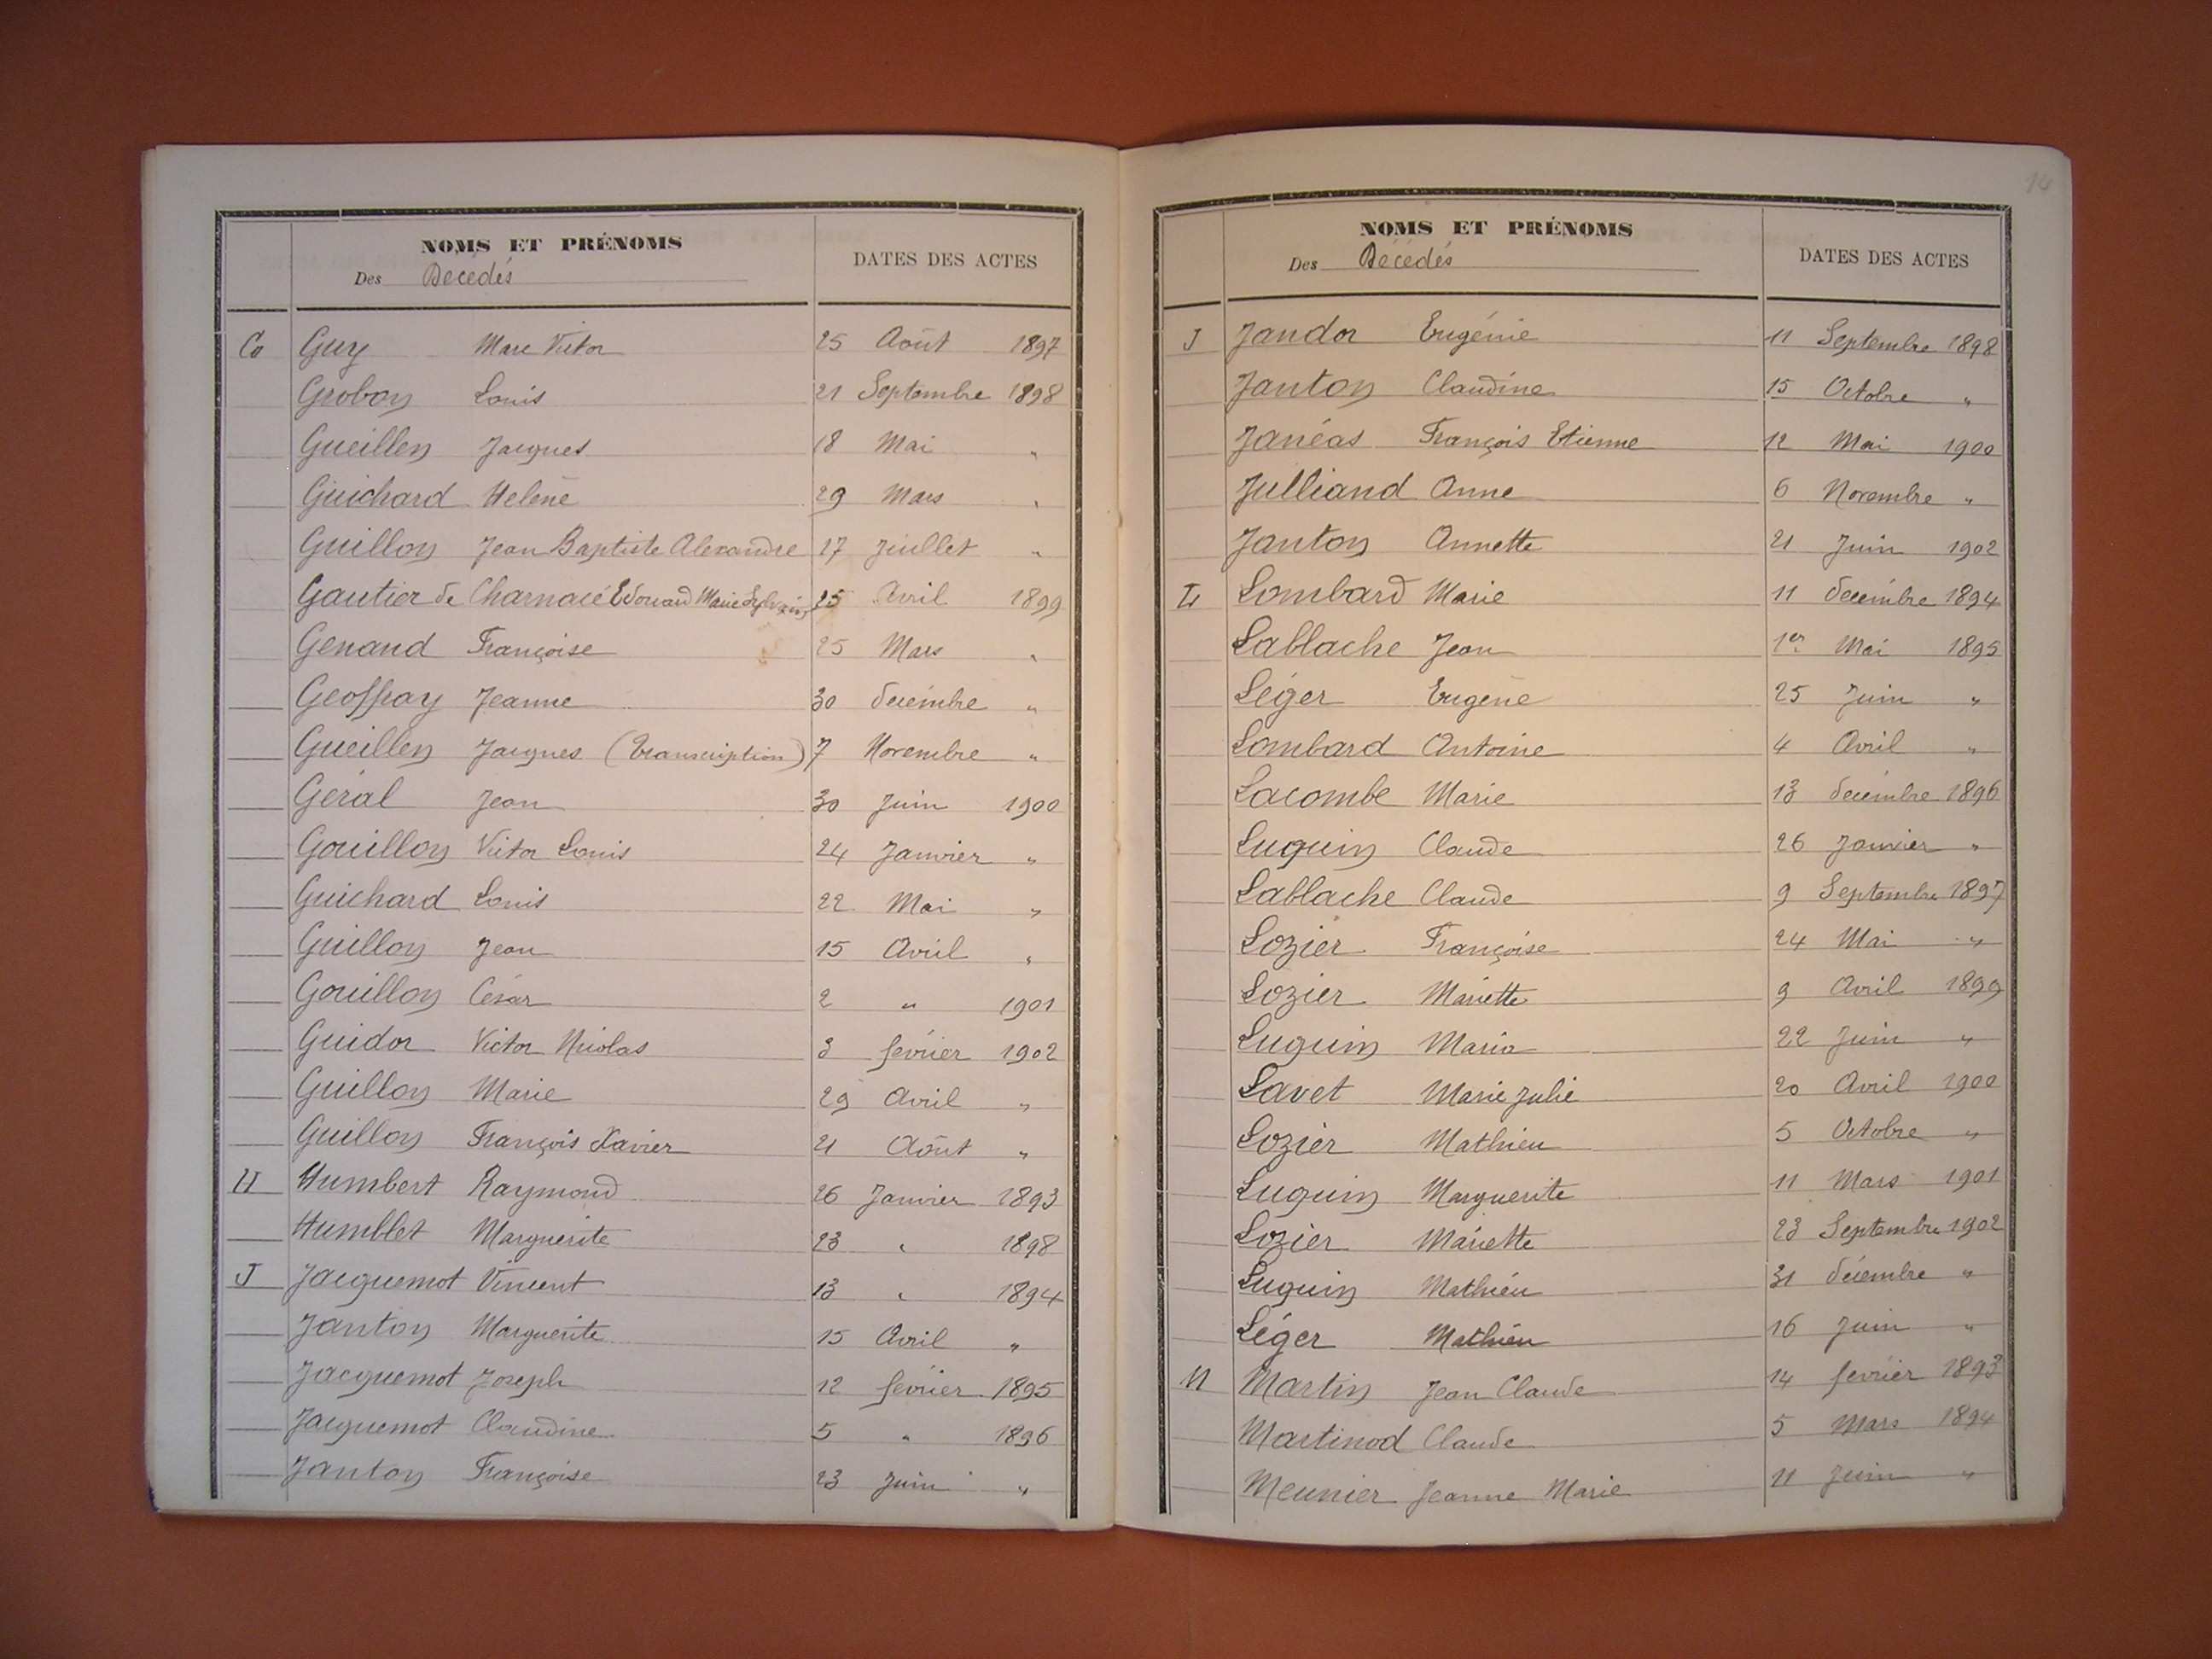 NOMS ET PRÉNOMS
Des Décédés
DATES DES ACTES
G Guy Marc Victor 25 Août 1897
Grobon Louis 21 Septembre 1898
Gueillen Jacques 18 Mai "
Guichard Helène 29 Mars "
Guillon Jean Baptiste Alexandre 27 Juillet "
Gautier de Charnacé Edouard Marie Sylvain 25 Avril 1899
Genand Françoise 25 Mars "
Geoffray Jeanne 30 décembre "
Gueillen Jacques (Transcription) 7 Novembre "
Géral Jean 30 Juin 1900
Gouillon Victor Louis 24 Janvier "
Guichard Louis 22 Mai "
Guillon Jean 15 Avril "
Gouillon César 2 " 1901
Guidor Victor Nicolas 3 février 1902
Guillon Marie 29 Avril "
Guillon François Xavier 21 Août "
H Humbert Raymond 26 Janvier 1893
Humblet Marguerite 23 " 1898
J Jacquemot Vincent 13 " 1894
Janton Marguerite 15 Avril "
Jacquemot Joseph 12 février 1895
Jacquemot Claudine 5 " 1896
Janton Françoise 23 Juin "
14
NOMS ET PRÉNOMS
Des Décédés
DATES DES ACTES
J Jandor Eugénie 11 Septembre 1898
Janton Claudine 15 Octobre "
Janéas François Etienne 12 Mai 1900
Julliand Anne 6 Novembre "
Janton Annette 21 Juin 1902
L Lombard Marie 11 décembre 1894
Lablache Jean 1er Mai 1895
Léger Eugène 25 Juin "
Lombard Antoine 4 Avril "
Lacombe Marie 13 décembre 1896
Luquin Claude 26 Janvier "
Lablache Claude 9 Septembre 1897
Lozier Françoise 24 Mai "
Lozier Mariette 9 Avril 1899
Luquin Maria 22 Juin "
Lavet Marie Julie 20 Avril 1900
Lozier Mathieu 5 Octobre "
Luquin Marguerite 11 Mars 1901
Lozier Mariette 23 Septembre 1902
Luquin Mathieu 31 décembre "
Léger Mathieu 16 Juin "
M Martin Jean Claude 14 février 1893
Martinod Claude 5 Mars 1894
Meunier Jeanne Marie 11 Juin "